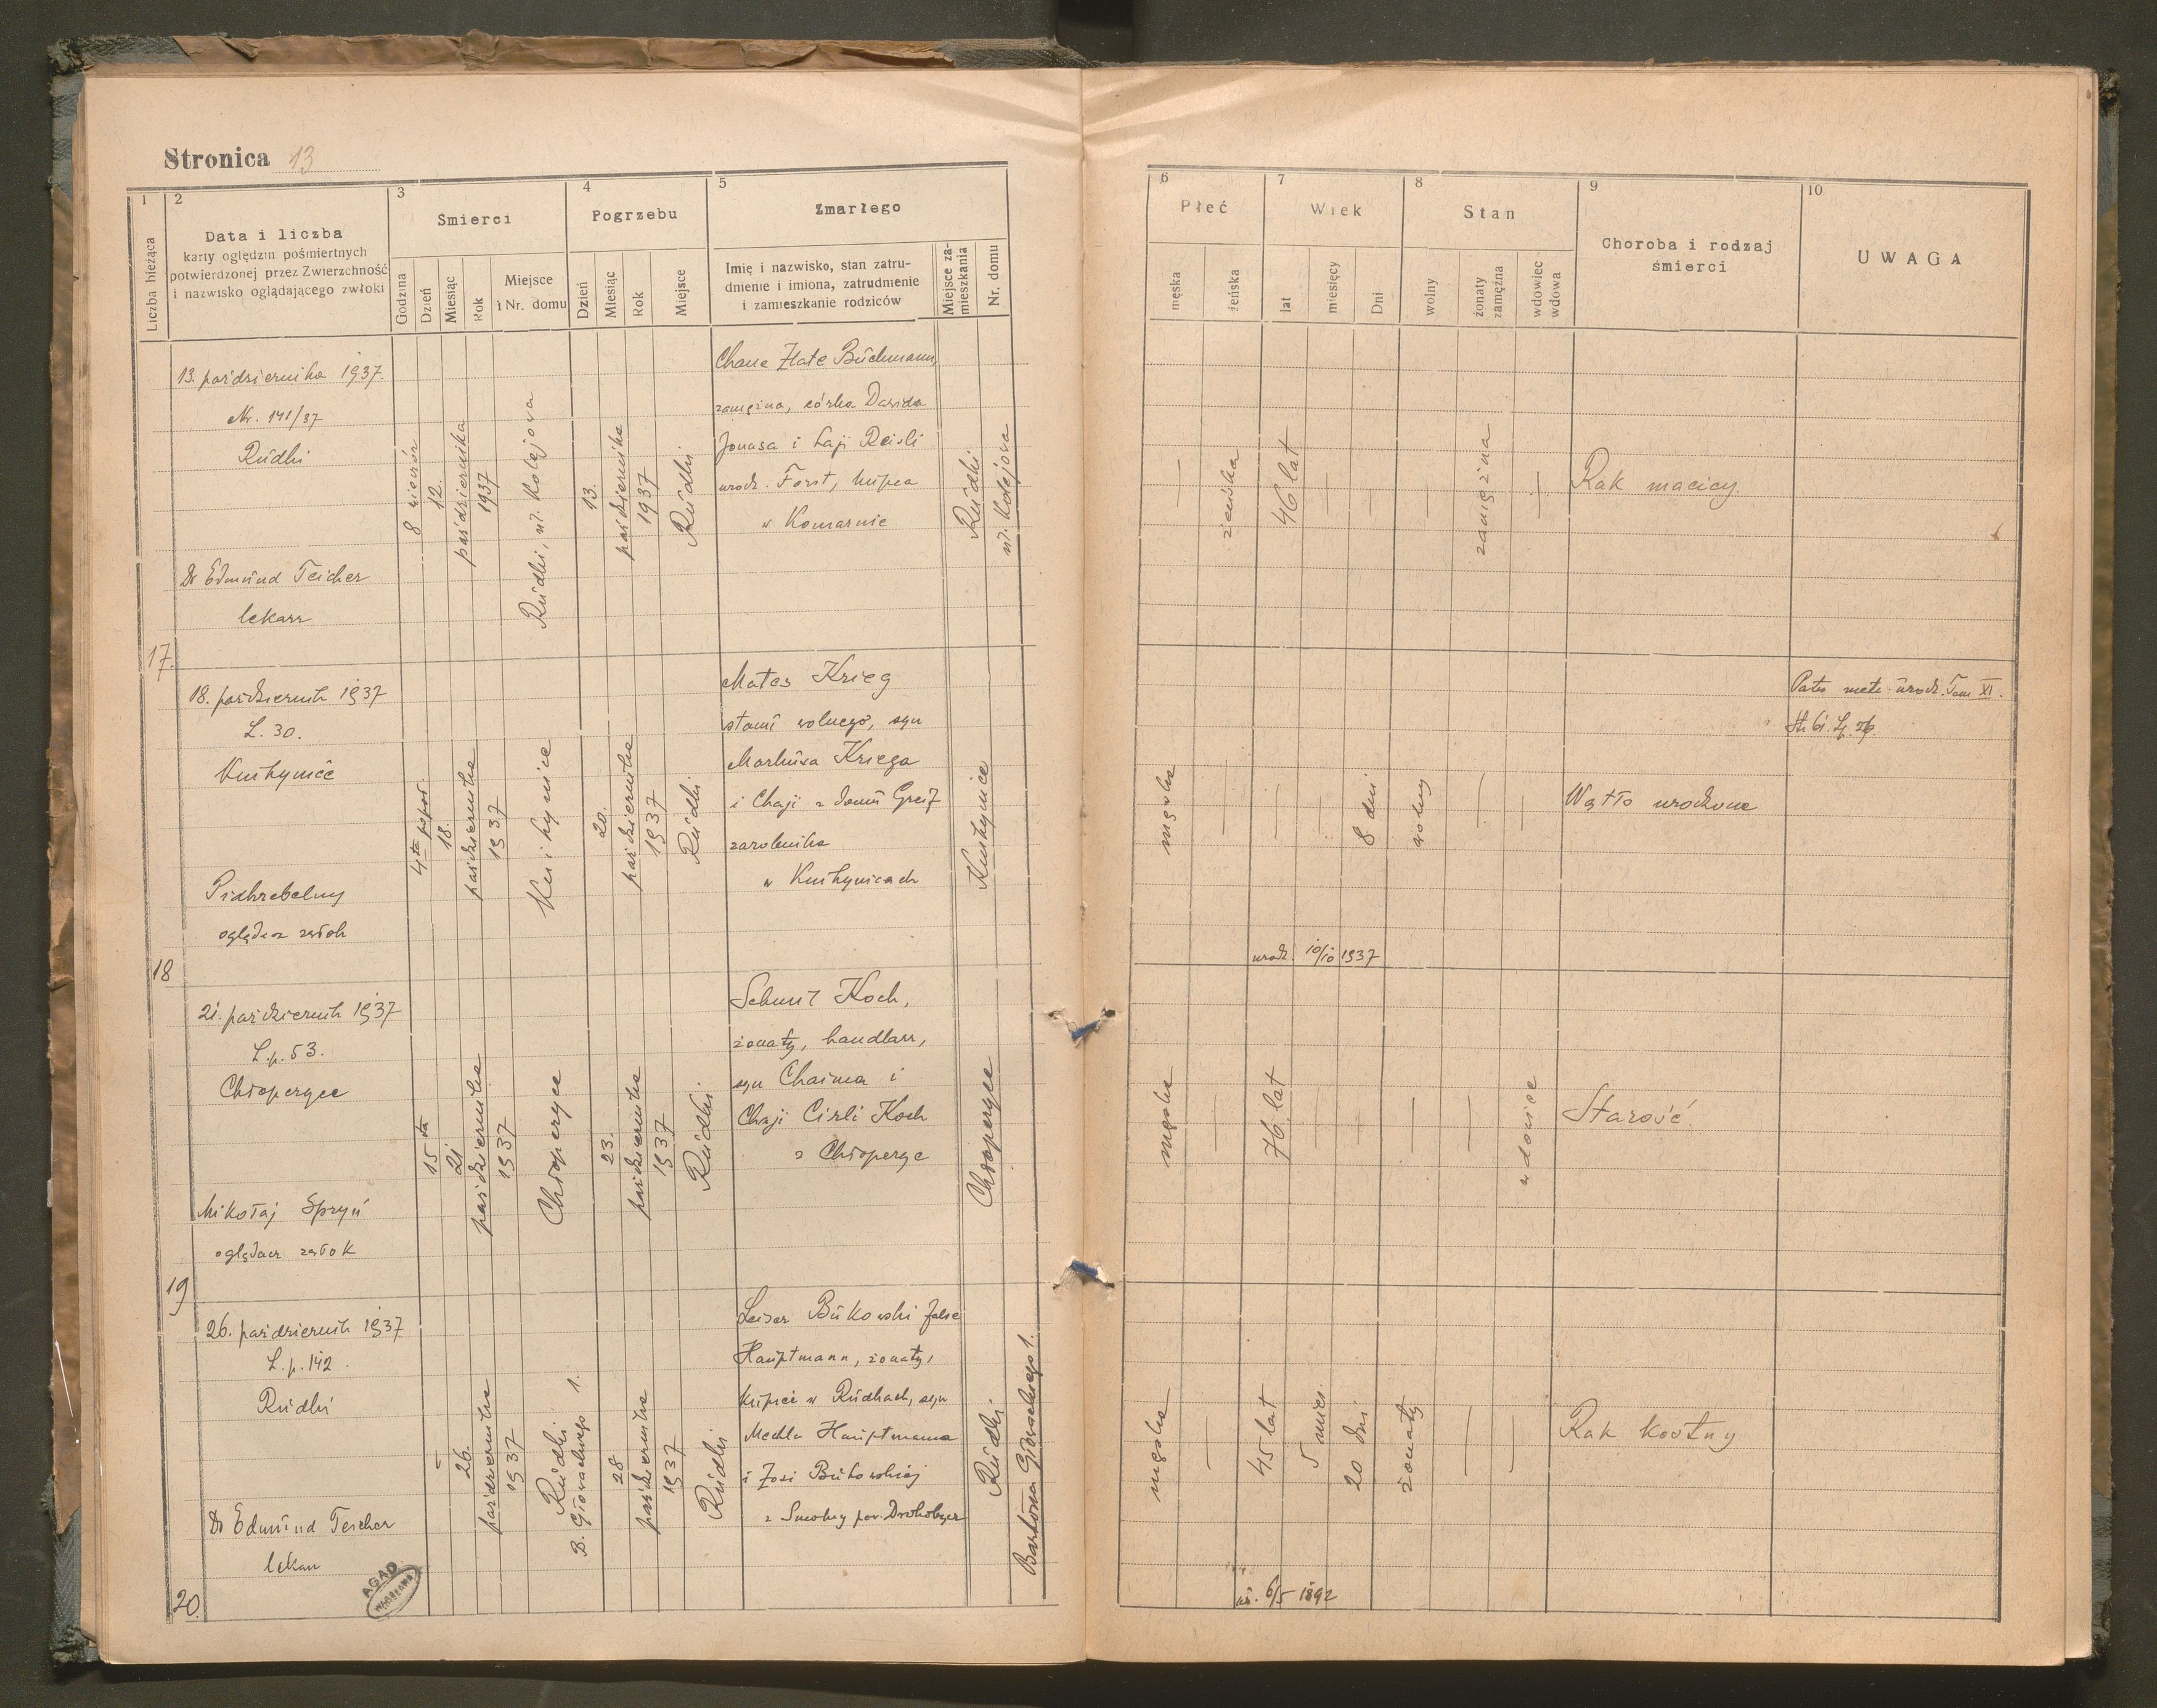 Stronica 13
1
2
3
4
5
6
7
8
9
10
Liczba bieżąca
Data i liczba
karty oględzin pośmiertnych
potwierdzonej przez Zwierzchność
i nazwisko oglądającego zwłoki
Smierci
Godzina
Dzień
Miesiąc
Rok
Miejsce
i Nr. domu
Pogrzebu
Dzień
Miesiąc
Rok
Miejsce
Zmarłego
Imię i nazwisko, stan zatru-
dnienie i imiona, zatrudnienie
i zamieszkanie rodziców
Miejsce za-
mieszkania
Nr. domu
Płeć
męska
żeńska
Wiek
lat
miesięcy
Dni
Stan
wolny
żonaty
zamężna
wdowiec
wdowa
Choroba i rodzaj
śmierci
UWAGA
17.
13. października 1937.
Nr. 141/37
Rudki
Dr Edmund Teicher
lekarz
8 wieczór
12.
października
1937
Rudki, ul. Kolejowa
13.
października
1937
Rudki.
Chane Zlate Buchmann,
zamężna, córka Dawida
Jonasa i Łaji Reisli
urodz. Forst, kupca
w Komarnie
Rudki
ul. Kolejowa
—
żeńska
46 lat
—
—
—
zamężna
—
Rak macicy.
18
18. październik 1937
L. 30.
oględacz zwłok
4ta popoł.
18.
października
1937
20.
października
1937
Rudki.
Mates Krieg
stanu wolnego, syn
Markusa Kriega
i Chaji z domu Greif
zarobnika
męska
—
—
—
8 dni
wolny
—
—
Wątło urodzone
urodz. 10/10 1937
19
21. październik 1937
L.p. 53.
Chłopczyce
Mikołaj Spryń
oglądacz zwłok
15ta
21
października
1937
Chłopczyce
23.
października
1937
Rudki.
Koch,
żonaty, handlarz,
syn Chaima i
Chaji Cirli Koch
z Chłopczyc
Chłopczyce
męska
—
76 lat
—
—
—
—
wdowiec
Starość.
20.
26. październik 1937
L.p. 142.
Rudki
Dr Edmund Teicher
lekarz
—
26.
października
1937
Rudki
B. Głowackiego 1.
28
października
1937
Rudki
Leiser Bukowski false
Hauptmann, żonaty,
kupiec w Rudkach, syn
Mechla Hauptmanna
i Zosi Bukowskiej
pow. Drohobycz
Rudki
Bartosza Głowackiego 1.
męska
—
45 lat
5 mies.
20 dni
żonaty
—
—
Rak kostny
ur. 6/5 1892
AGAD
WARSZAWA